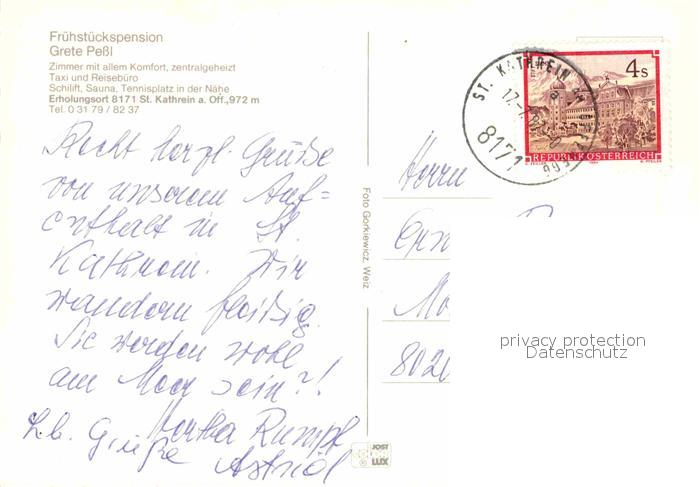 Frühstückspension
Grete Peßl
Zimmer mit allem Komfort, zentralgeheizt
Taxi und Reisebüro
Schilift, Sauna, Tennisplatz in der Nähe
Erholungsort 8171 St. Kathrein a. Off., 972 m
Tel. 0 31 79 / 82 37
Recht herzl. Grüße
von unserem Auf=
enthalt in St.
Kathrein. Wir
wandern fleißig.
Sie werden wohl
am Meer sein?!
Hertha Rumpf
L.b. Grüße Astrid
Foto Gorkiewicz, Weiz
JOST
LUX
ST. KATHREIN AM
8171
4s
REPUBLIK ÖSTERREICH
Herrn
8020
privacy protection
Datenschutz